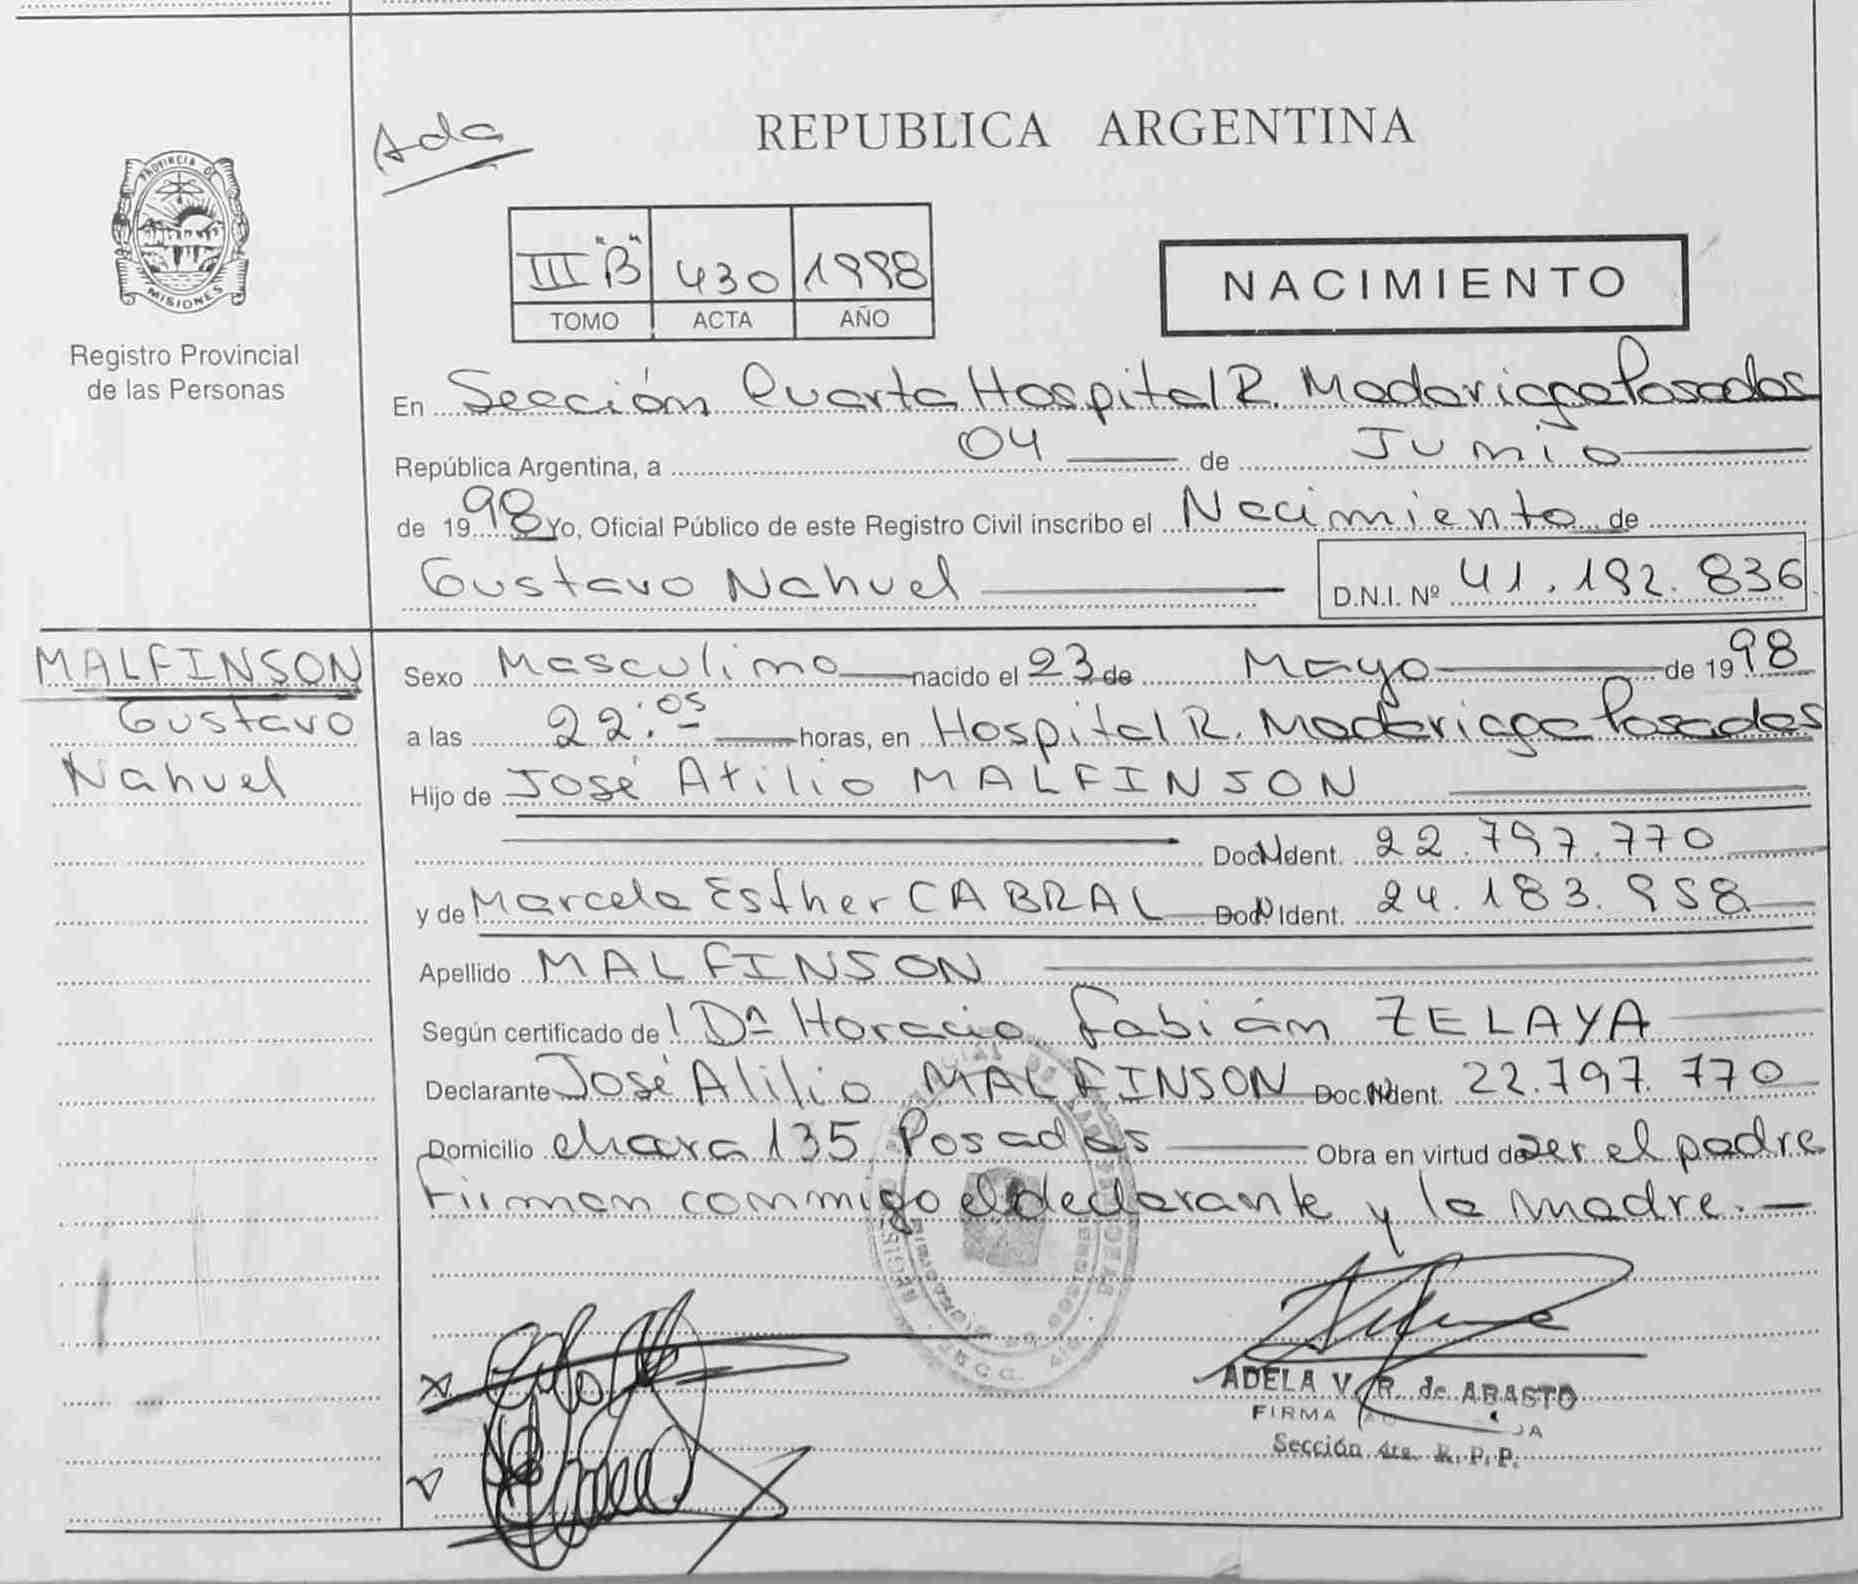 PROVINCIA DE
MISIONES
Registro Provincial
de las Personas
Ada
REPUBLICA ARGENTINA
III "B" 430 1998
TOMO ACTA AÑO
NACIMIENTO
En Sección Cuarta Hospital R. Madariaga Posadas
República Argentina, a 04 de Junio
de 1998 Yo, Oficial Público de este Registro Civil inscribo el Nacimiento de
Gustavo Nahuel D.N.I. Nº 41.192.836
MALFINSON
Gustavo
Nahuel
Sexo Masculino nacido el 23 de Mayo de 1998
a las 22:05 horas, en Hospital R. Madariaga Posadas
Hijo de José Atilio MALFINSON
Doc. Ident. 22.797.770
y de Marcela Esther CABRAL Doc. Ident. 24.183.958
Apellido MALFINSON
Según certificado de Horacio Fabián ZELAYA
Declarante José Atilio MALFINSON Doc. Ident. 22.797.770
Domicilio chacra 135 Posadas Obra en virtud de ser el padre
Firman conmigo el declarante y la madre.
ADELA V. R. de ABASTO
FIRMA
Sección 4ta. R. P. P.